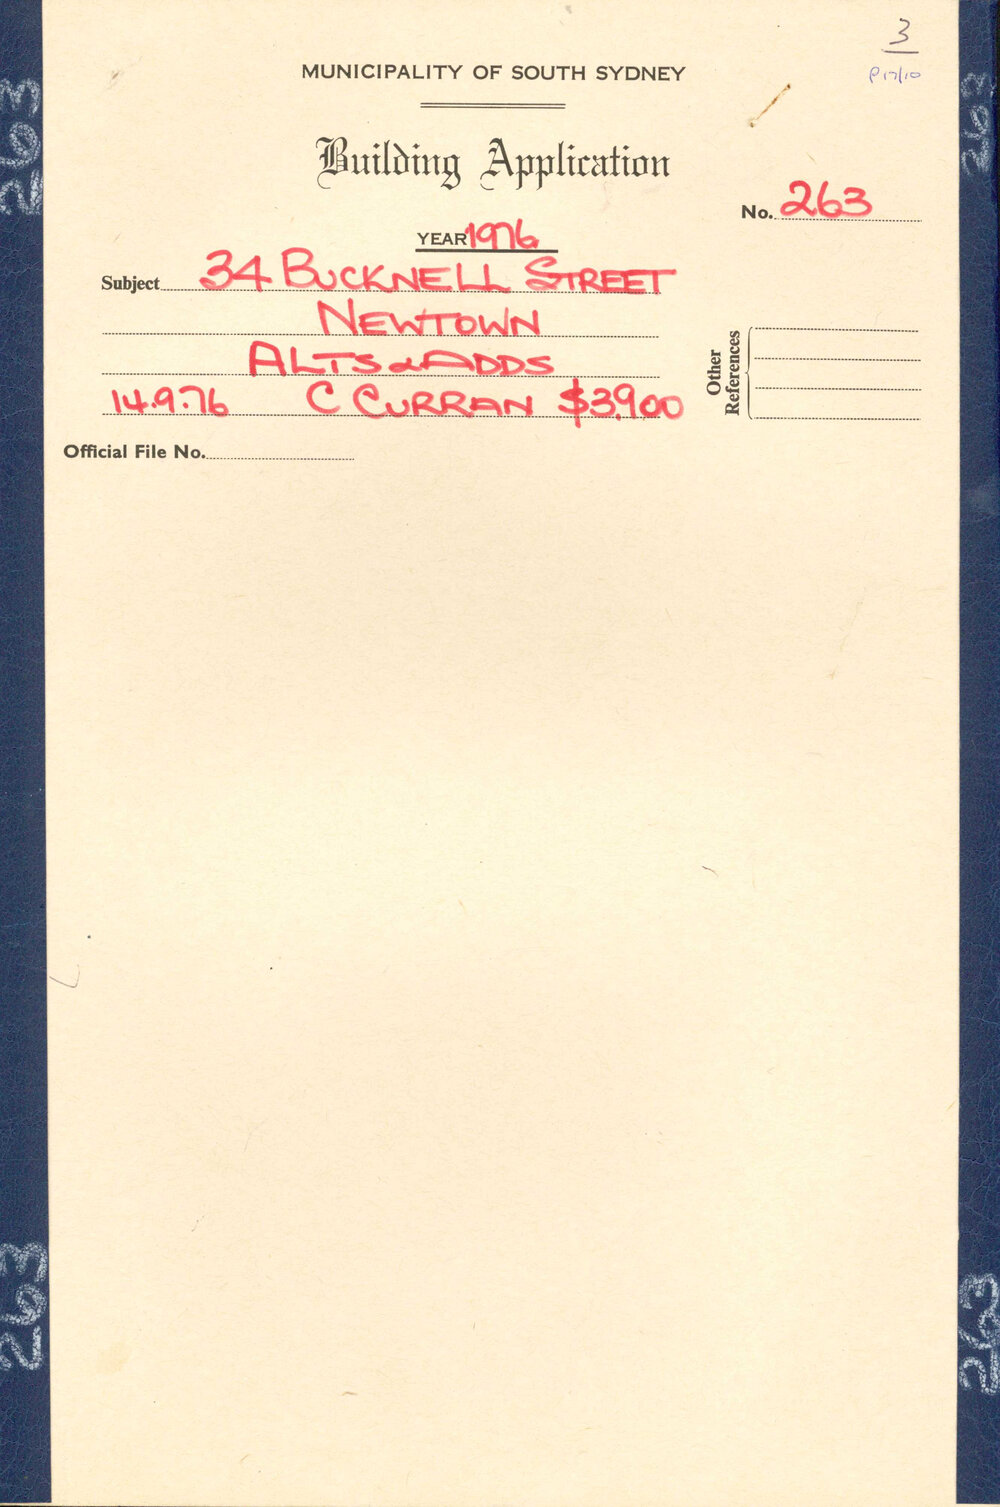 3
P 17/10
MUNICIPALITY OF SOUTH SYDNEY
Building Application
No. 263
YEAR 1976
Subject 34 BUCKNELL STREET
NEWTOWN
ALTS & ADDS
14.9.76 C CURRAN $3,900
Other References
Official File No.
263
263
263
263